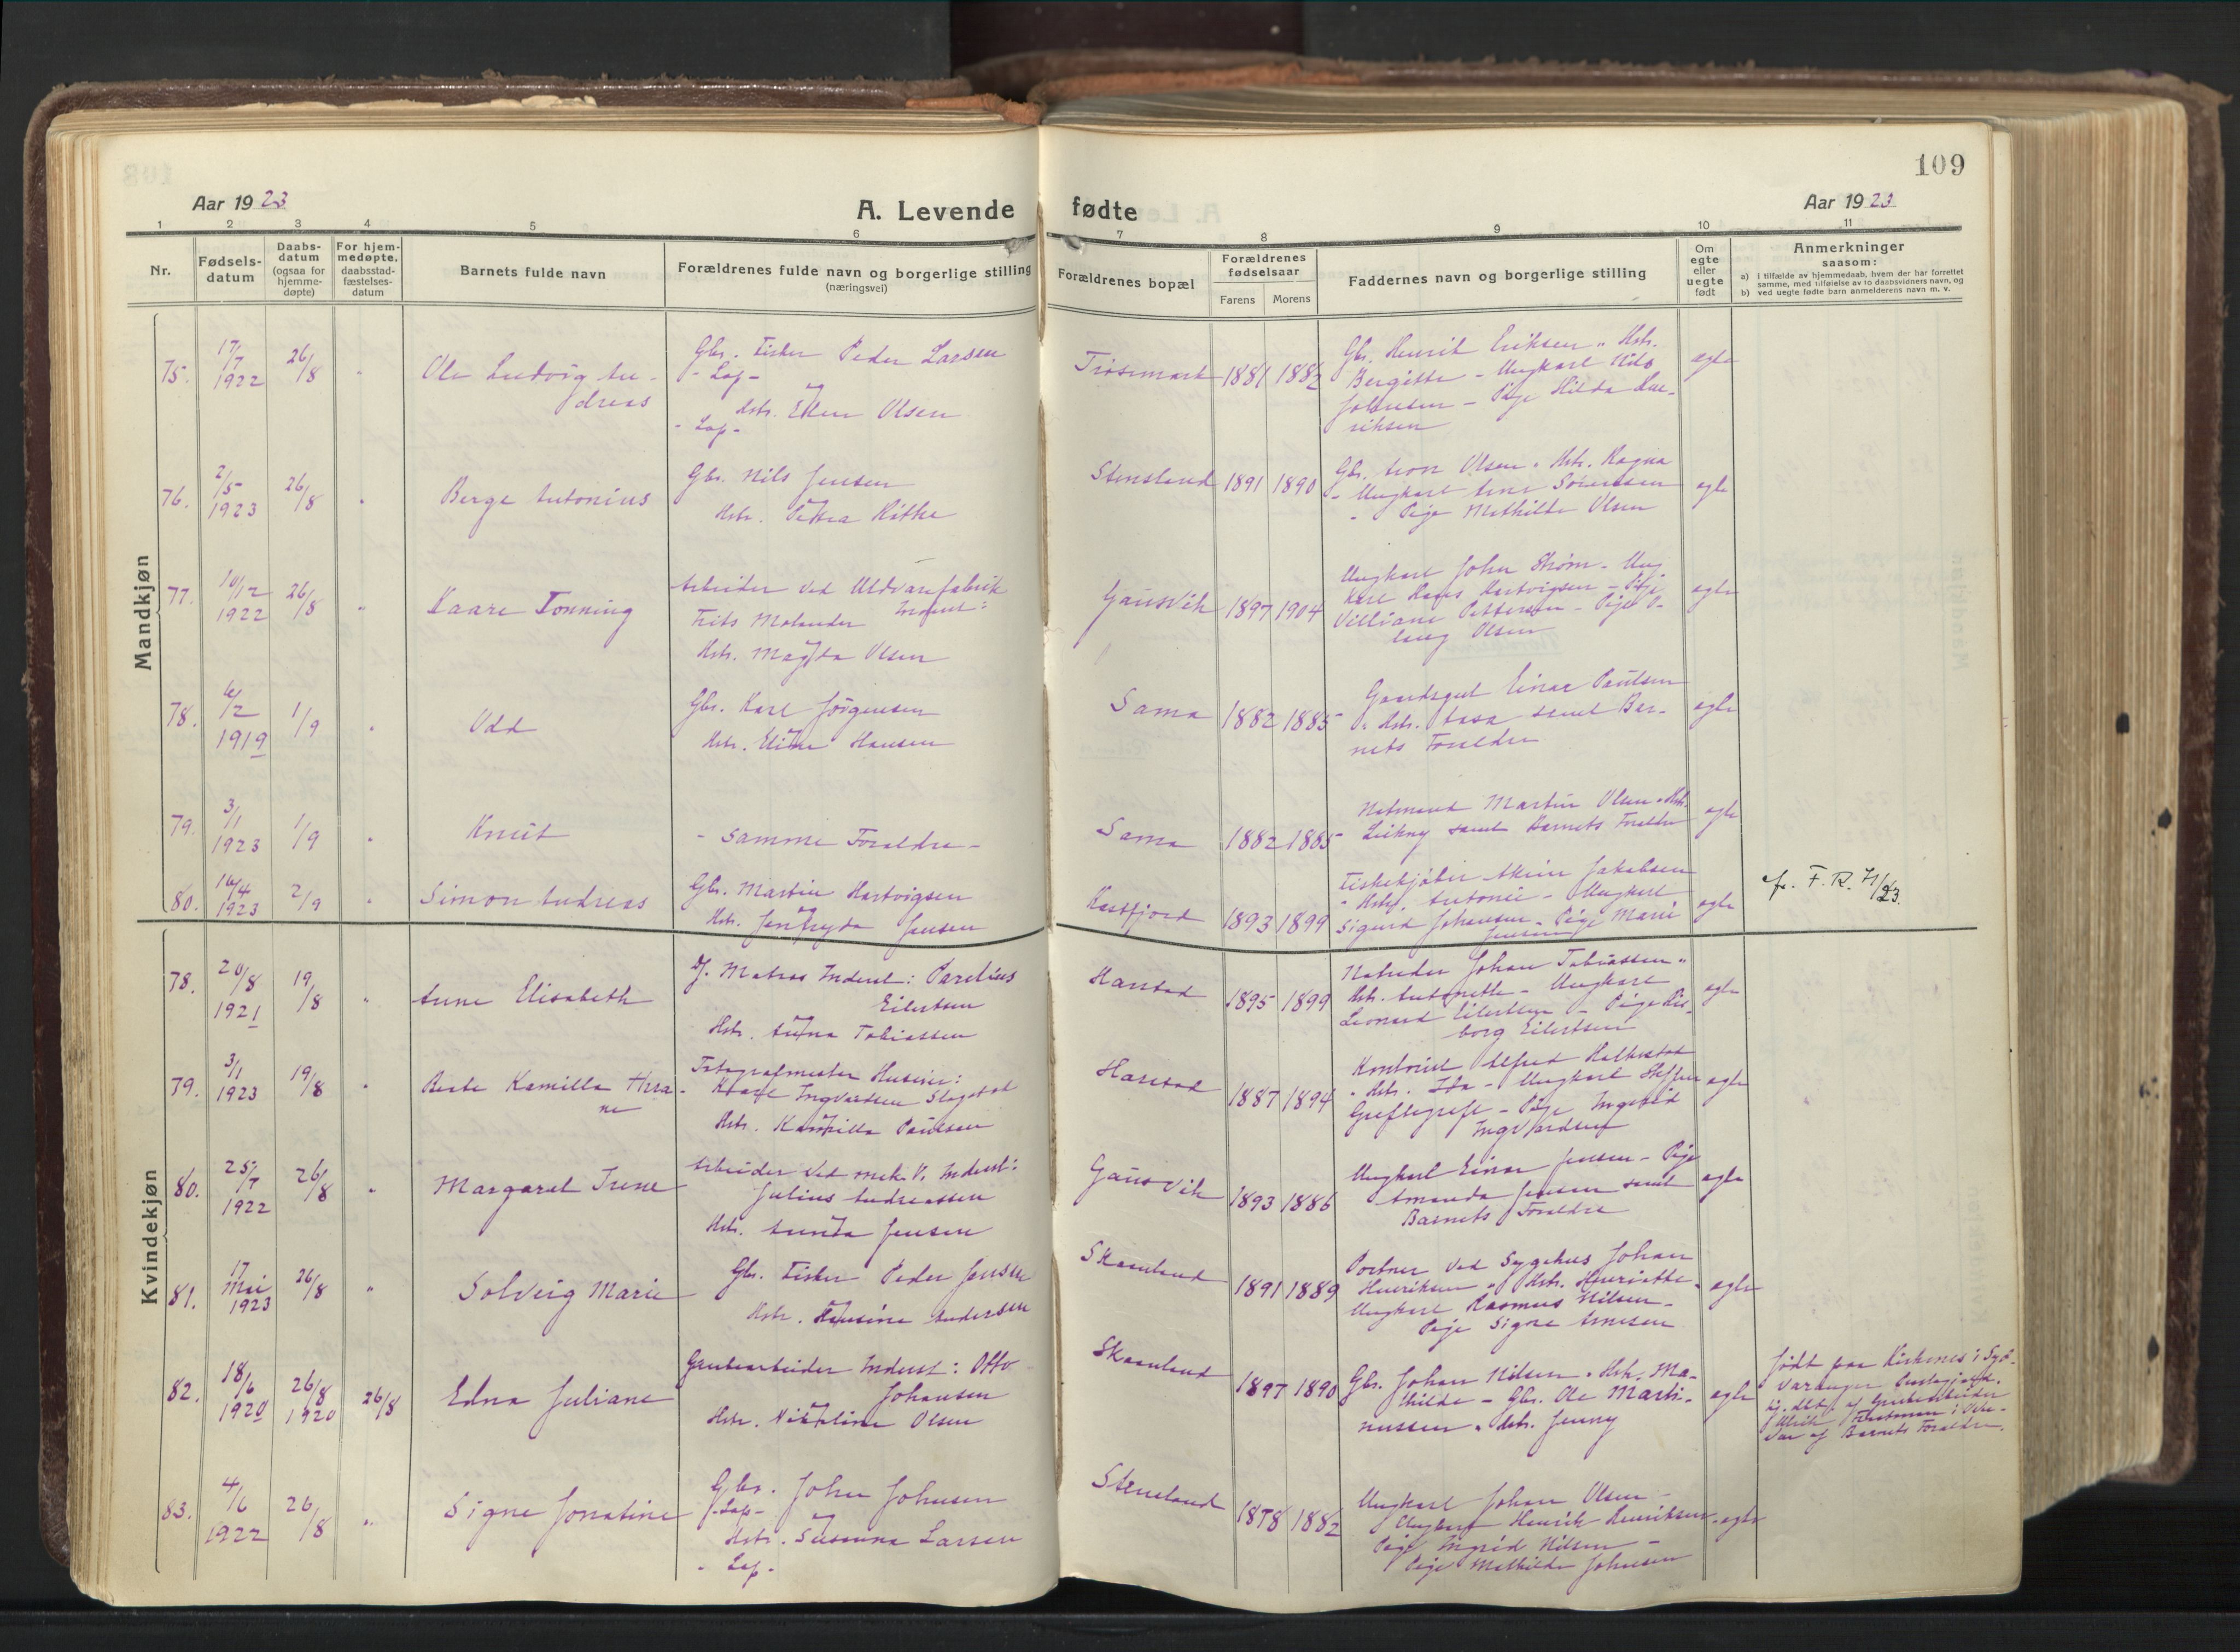 109
Aar 1923
A. Levende fødte
Aar 1923
1 2 3 4 5 6 7 8 9 10 11
Nr.
Fødsels-
datum
Daabs-
datum
(ogsaa for
hjemme-
døpte)
For hjem-
medøpte,
daabsstad-
fæstelses-
datum
Barnets fulde navn
Forældrenes fulde navn og borgerlige stilling
(næringsvei)
Forældrenes bopæl
Forældrenes
fødselsaar
Farens Morens
Faddernes navn og borgerlige stilling
Om
egte
eller
uegte
født
Anmerkninger
saasom:
a) i tilfælde av hjemmedaab, hvem der har forrettet
samme, med tilføielse av to daabsvidners navn, og
b) ved uegte fødte barn anmelderens navn m. v.
Mandkjøn
75. 17/7 1922 26/8 " Ole Ludvig An-
dreas
Gbr. Fisker Peder Larsen
- Lap -
Hstr. Ellen Olsen
- Lap -
1881 1882
Gbr. Henrik Eriksen " Hstr.
Bergitte - Ungkarl Nils
Johnsen - Pige Hilda Hen-
riksen
egte
76. 2/5 1923 26/8 " Berge Antonius
Gbr. Nils Jensen
Hstr. Petra Kithe
Stensland 1891 1890
Gbr. Aron Olsen " Hstr. Ragna
- Ungkarl Arne Sørensen
- Pige Mathilde Olsen
egte
77. 10/12 1922 26/8 " Kaare Tonning
Arbeider ved Uldvarefabrik
Frits Molander Indent:
Hstr. Magda Olsen
Gausvik 1897 1904
Ungkarl John Strøm - Ung-
karl Hans Hartvigsen - Pige
Villiane Pettersen - Pige
Olsen
egte
78. 6/2 1919 1/9 " Odd
Gbr. Karl Jørgensen
Hstr. Eline Hansen
Sama 1882 1885
Gaardsgut Einar Paulsen
" Hstr. Aasa samt Bar-
nets Forældre
egte
79. 3/1 1923 1/9 " Knut
- Samme Forældre -
Sama 1882 1885
Notmand Martin Olsen " Hstr.
samt Barnets Forældre
egte
80. 16/4 1923 2/9 " Simon Andreas
Gbr. Martin Hartvigsen
Hstr. Jenfryda Jensen
Kasfjord 1893 1899
Fiskekjøber Jakobsen
" Hstr. Antonie - Ungkarl
Sigurd Johansen - Pige Marie
Jensen
egte
F. R. 71/23.
Kvindekjøn
78. 20/8 1921 19/8 " Anne Elisabeth
Matros Indent: Parelius
Eilertsen
Hstr. Anna Tobiassen
Harstad 1895 1899
Johan Tobiassen "
Hstr. Antonette - Ungkarl
Leonard Eilertsen - Pige
borg Eilertsen
egte
79. 3/1 1923 19/8 " Beate Kamilla Thra-
ne
Fotografmester Huseier:
Karl Ingvardsen Slagstad
Hstr. Kamilla Paulsen
Harstad 1887 1894
Kontorist Alfred Halvestad
" Hstr. Ida - Ungkarl Steffen
- Pige Ingebrid
Ingvardsen
egte
80. 25/7 1922 26/8 " Margaret Irene
Arbeider ved mek. V. Indent:
Julius Andreassen
Hstr. Jensen
Gausvik 1893 1886
Ungkarl Einar Jensen - Pige
Amanda Jensen samt
Barnets Forældre
egte
81. 17 Mai 1923 26/8 " Solveig Marie
Gbr. Fisker Peder Jensen
Hstr. Hansine Andersen
Skaanland 1891 1889
Portner ved Sygehus Johan
Henriksen " Hstr. Henriette -
Ungkarl Rasmus Nilsen -
Pige Signe Arnesen
egte
82. 18/6 1920 26/8 1920 26/8 Edna Juliane
Grubearbeider Indent: Otto
Johansen
Hstr. Nikoline Olsen
Skaanland 1897 1890
Gbr. Johan Nilsen " Hstr. Ma-
thilde - Gbr. Ole Marti-
nussen " Hstr. Jenny
egte
født paa Kirkenes i Syd-
Varanger Prestegjeld.
Hj. døbt af Grubearbeider
Ulrik
af Barnets Forældre.
83. 4/6 1922 26/8 " Signe Jonatine
Gbr. John Johnsen
- Lap -
Hstr. Susanna Larsen
- Lap -
Stensland 1878 1882
Ungkarl Johan Olsen -
Ungkarl Henrik Henriksen -
Pige Ingrid Nilsen -
Pige Mathilde Johnsen
egte